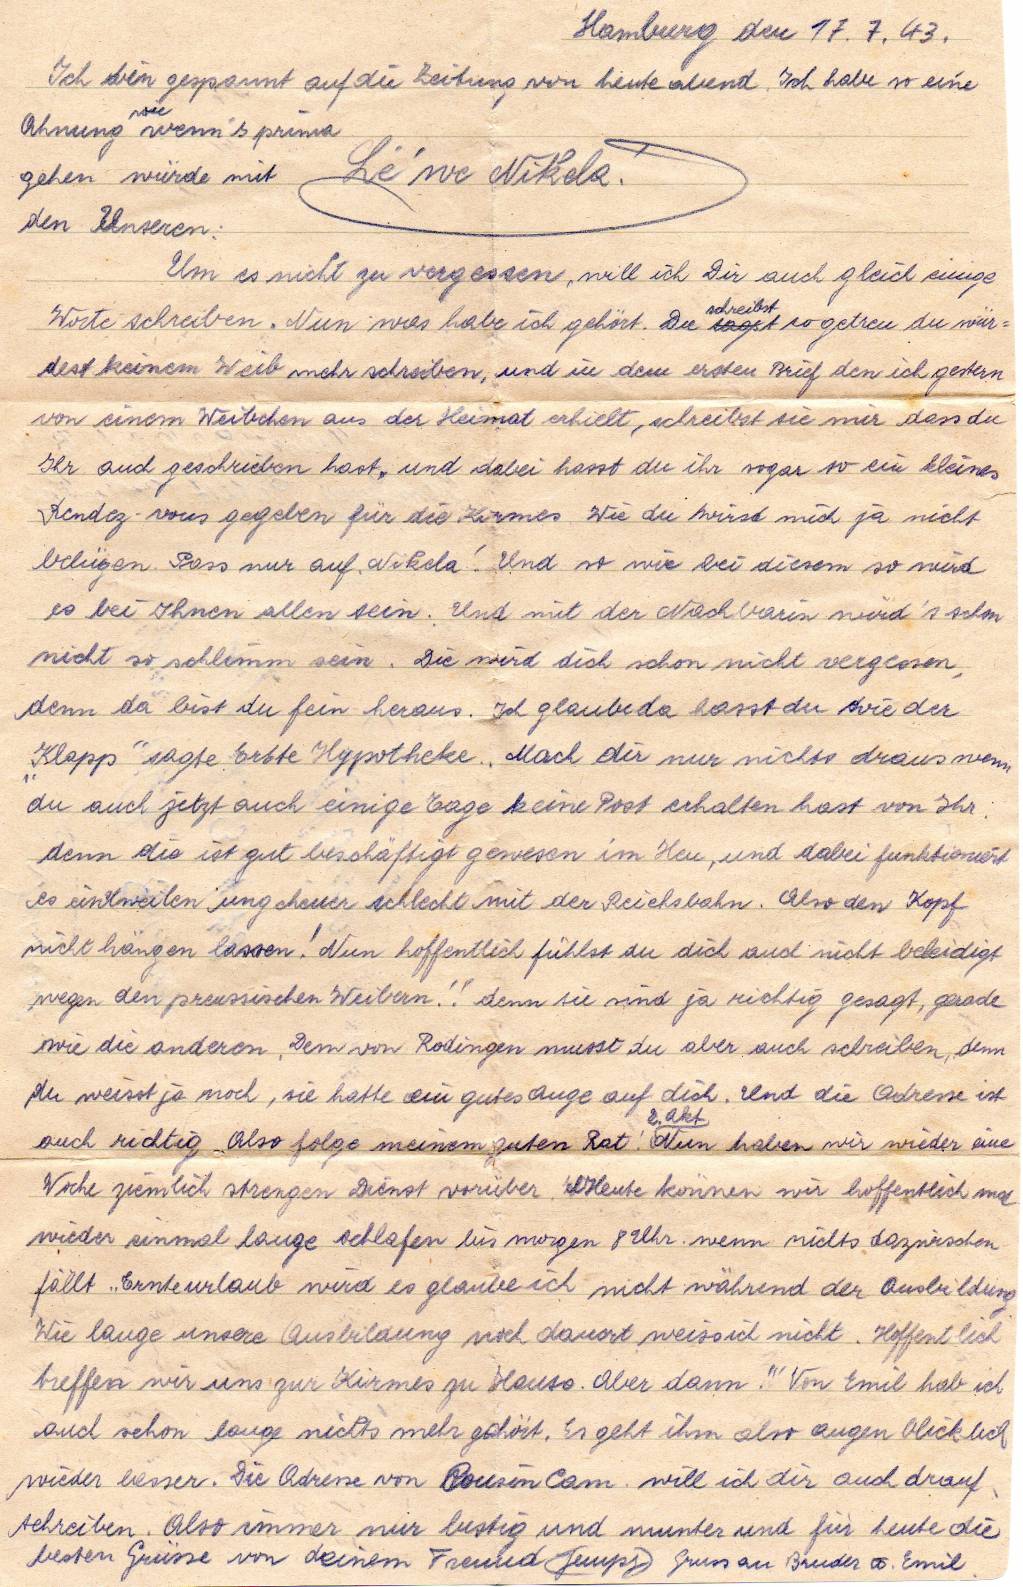 Hamburg den 17. 7. 43.
Ich bin gespannt auf die Zeitung von heute abend. Ich habe so eine
Ahnung wie wenn's prima
gehen würde mit
den Unseren:
Lé'we Nikela!
Um es nicht zu vergessen, will ich Dir auch gleich einige
Worte schreiben. Nun was habe ich gehört. Du schreibst so getreu du wür=
dest keinem Weib mehr schreiben, und in dem ersten Brief den ich gestern
von einem Weibchen aus der Heimat erhielt, schreibst sie mir dass du
Ihr auch geschrieben hast, und dabei hasst du ihr sogar so ein kleines
Rendez-vous gegeben für die Kirmes Wie du wirst mich ja nicht
belügen. Pass nur auf Nikela! Und so wie bei diesem so wird
es bei Ihnen allen sein. Und mit der Nachbarin wird's schon
nicht so schlimm sein. Die wird dich schon nicht vergessen,
denn da bist du fein heraus. Ich glaube da hasst du wie der
„Klapp" sagte Erste Hypotheke. Mach dir nur nichts draus wenn
du auch jetzt auch einige Tage keine Post erhalten hast von Ihr:
denn die ist gut beschäftigt gewesen im Heu, und dabei funktioniert
es einstweilen ungeheuer schlecht mit der Reichsbahn. Also den Kopf
nicht hängen lassen! Nun hoffentlich fühlst du dich auch nicht beleidigt
wegen den preussischen Weibern!! denn sie sind ja richtig gesagt, gerade
wie die anderen. Dem von Rodingen musst du aber auch schreiben, denn
du weisst ja noch, sie hatte ein gutes Auge auf dich. Und die Adresse ist
auch richtig. Also folge meinem guten Rat! 2. Akt Nun haben wir wieder eine
Woche ziemlich strengen Dienst vorüber. Heute können wir hoffentlich mal
wieder einmal lange schlafen bis morgen 8 Uhr. wenn nichts dazwischen
fällt. Ernteurlaub wird es glaube ich nicht während der Ausbildung
Wie lange unsere Ausbildung noch dauert weiss ich nicht. Hoffentlich
treffen wir uns zur Kirmes zu Hause. Aber dann!!! Von Emil hab ich
auch schon lange nichts mehr gehört. Es geht ihm also augenblicklich
wieder besser. Die Adresse von Cousin Cam. will ich dir auch drauf
schreiben. Also immer nur lustig und munter und für heute die
besten Grüsse von deinem Freund (Jempy) Gruss an Bruder u. Emil.